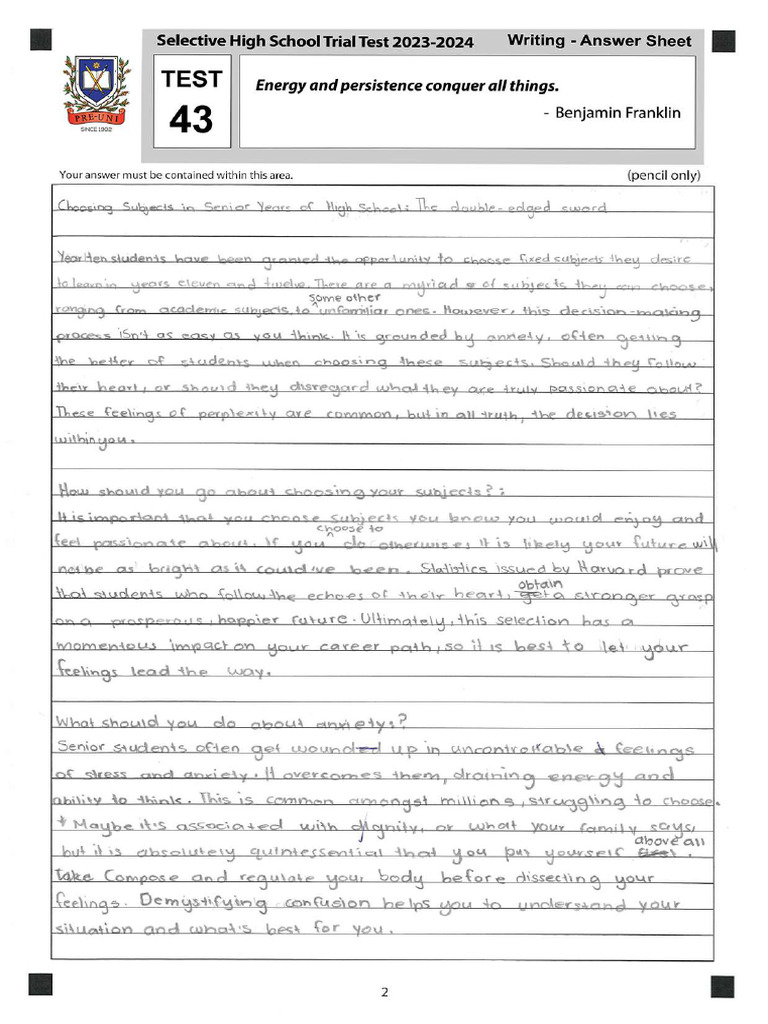 Selective High School Trial Test 2023-2024 Writing - Answer Sheet
TEST
43
Energy and persistence conquer all things.
- Benjamin Franklin
PRE-UNI
SINCE 1902
Your answer must be contained within this area. (pencil only)
Choosing Subjects in Senior Years of High School: The double-edged sword
Year ten students have been granted the opportunity to choose fixed subjects they desire
to learn in years eleven and twelve. There are a myriad of subjects they can choose,
ranging from academic subjects, to some other unfamiliar ones. However, this decision-making
process isn't as easy as you think. It is grounded by anxiety, often getting
the better of students when choosing these subjects. Should they follow
their heart, or should they disregard what they are truly passionate about?
These feelings of perplexity are common, but in all truth, the decision lies
within you.
How should you go about choosing your subjects?:
It is important that you choose subjects you know you would enjoy and
feel passionate about. If you choose to do otherwise, it is likely your future will
not be as bright as it could've been. Statistics issued by Harvard prove
that students who follow the echoes of their heart, obtain a stronger grasp
on a prosperous, happier future. Ultimately, this selection has a
momentous impact on your career path, so it is best to let your
feelings lead the way.
What should you do about anxiety?
Senior students often get wound up in uncontrollable feelings
of stress and anxiety. It overcomes them, draining energy and
ability to think. This is common amongst millions, struggling to choose.
Maybe it's associated with dignity, or what your family says,
but it is absolutely quintessential that you put yourself above all.
Compose and regulate your body before dissecting your
feelings. Demystifying confusion helps you to understand your
situation and what's best for you.
2